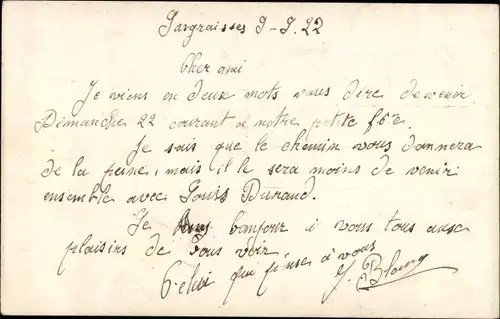 9-9.22
Cher ami
Je viens en deux mots vous dire de venir
Dimanche 22 courant à notre petite fête
Je sais que le chemin vous donnera
de la peine, mais il le sera moins de venir
ensemble avec Louis Durand.
Je bonjour à vous tous aux
plaisirs de vous voir
Celui qui pense à vous